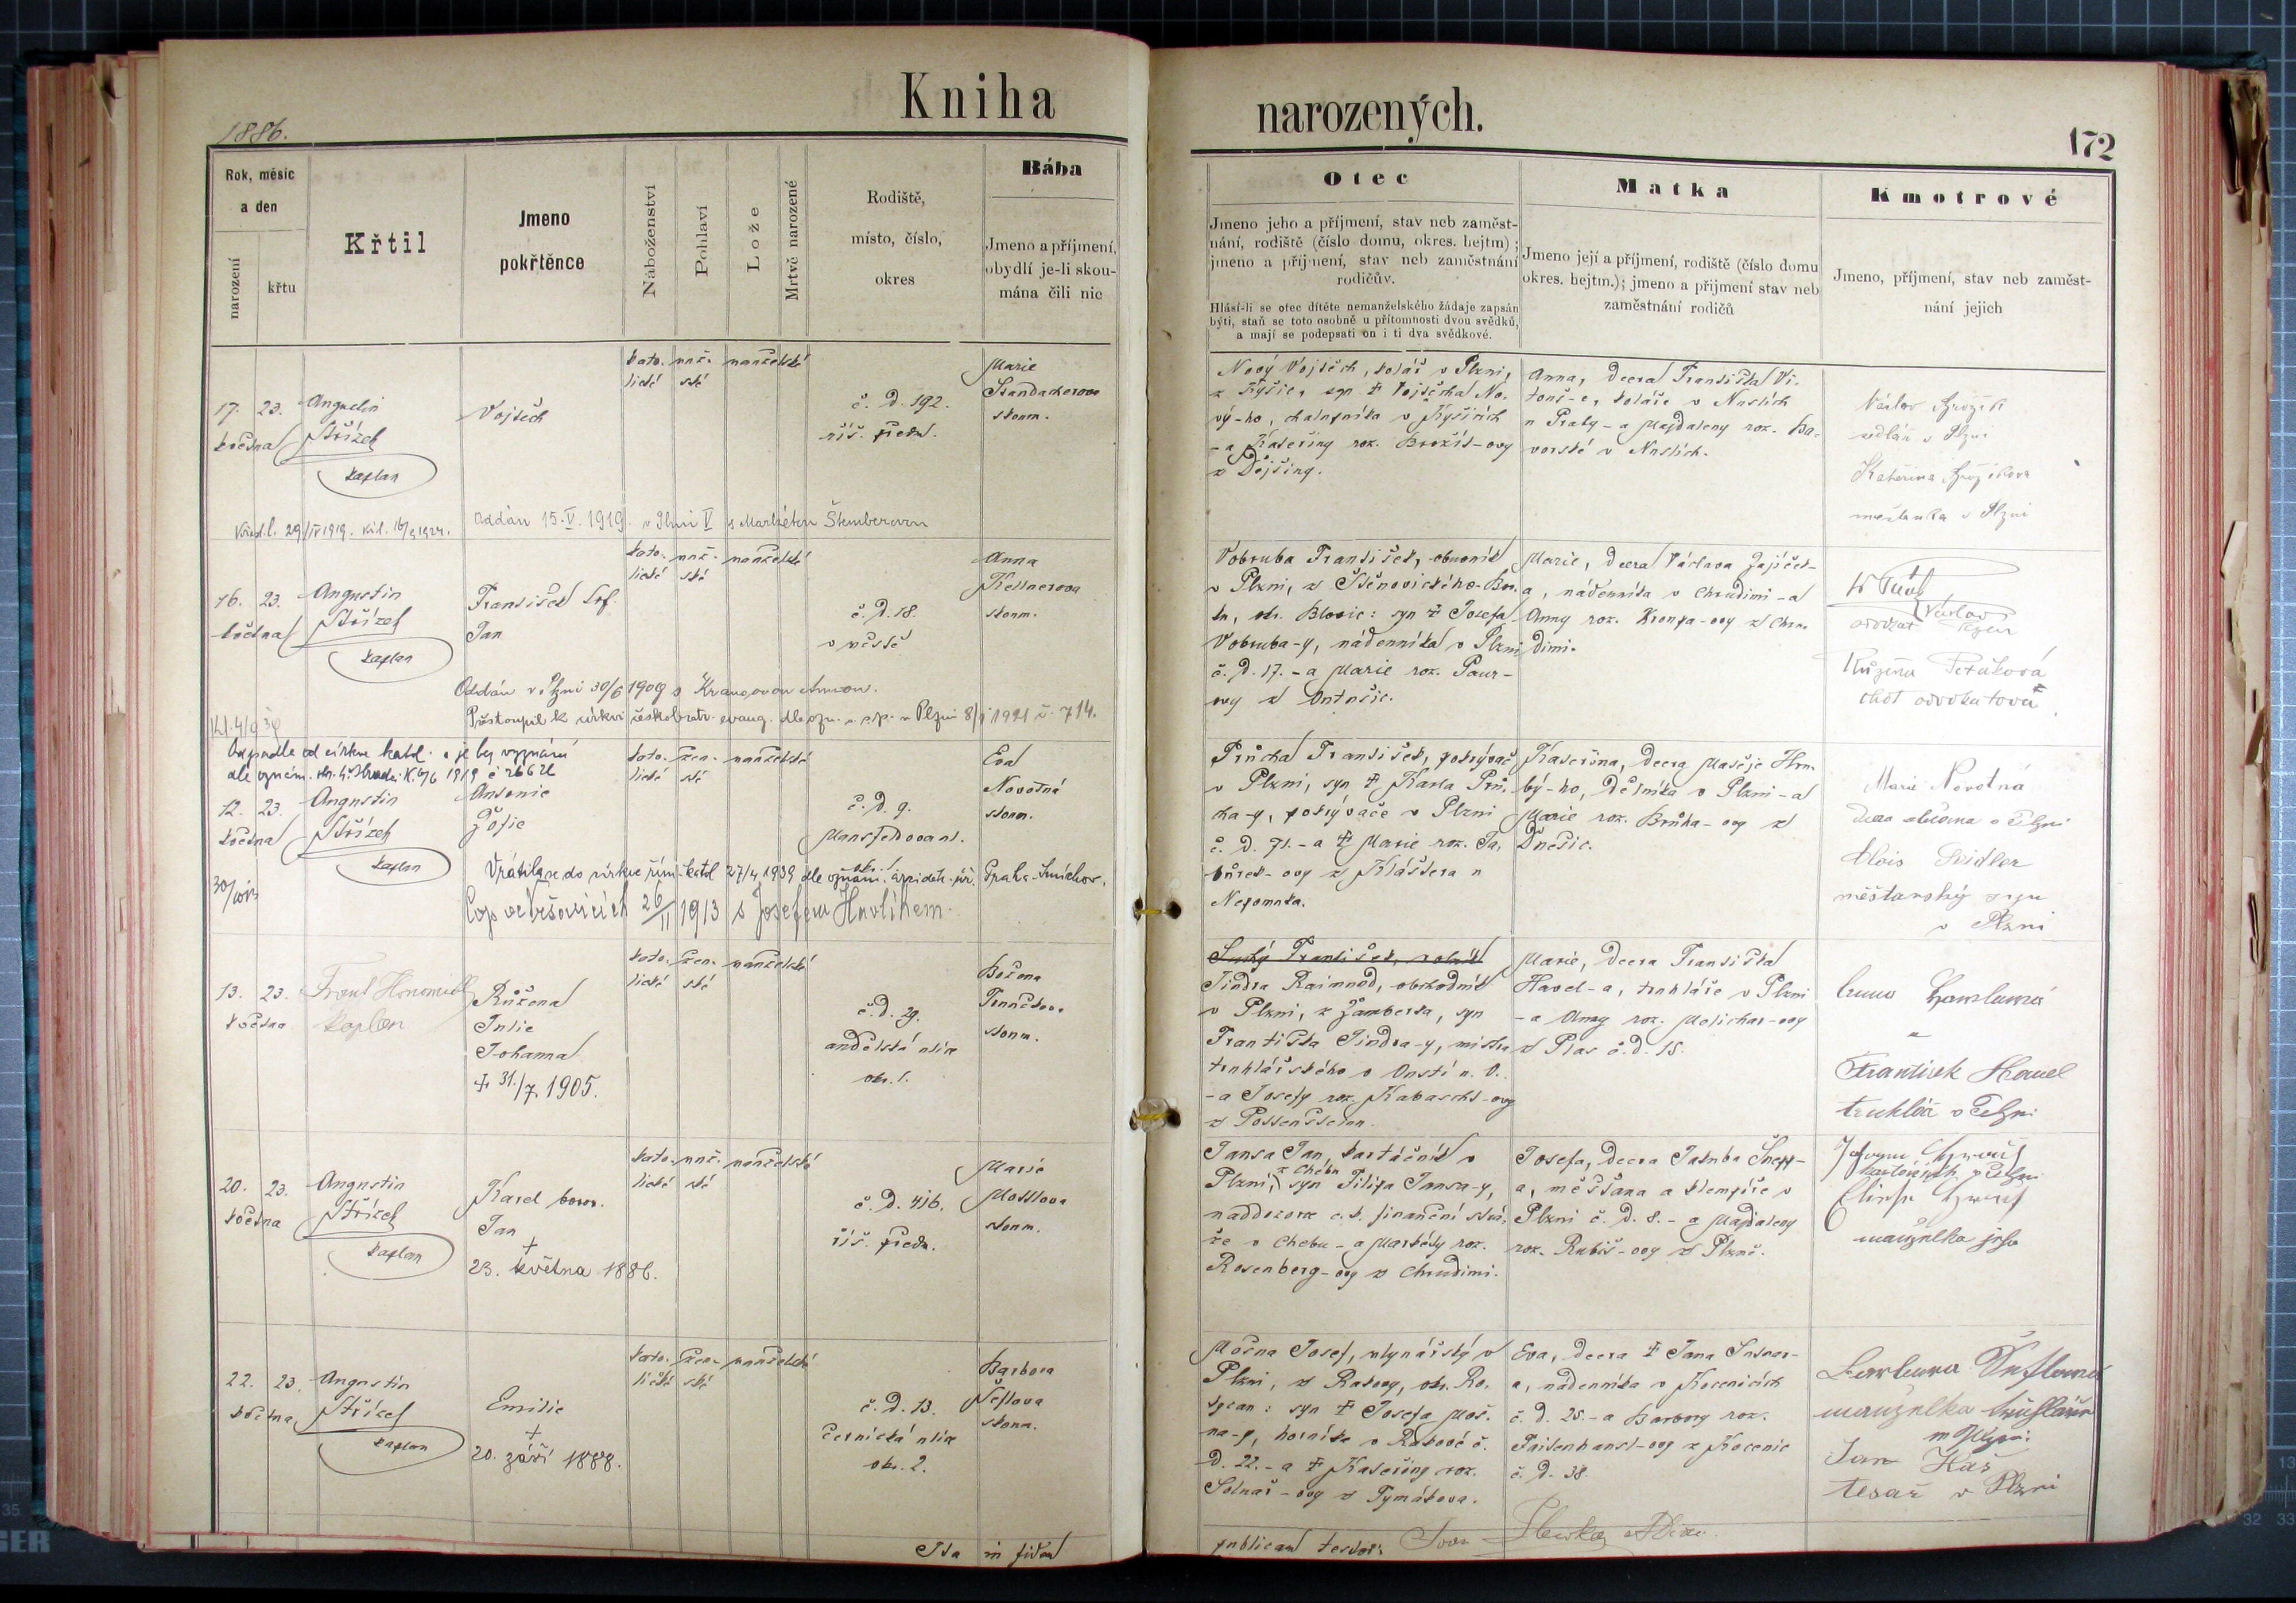 Kniha
narozených.
1886.
172
Rok, měsíc
a den
narození
křtu
Křtil
Jmeno
pokřtěnce
Náboženství
Pohlaví
Lože
Mrtvě narozené
Rodiště,
místo, číslo,
okres
Bába
Jmeno a příjmení,
obydlí je-li skou-
mána čili nic
Otec
Jmeno jeho a příjmení, stav neb zaměst-
nání, rodiště (číslo domu, okres. hejtm) ;
jmeno a příjmení, stav neb zaměstnání
rodičův.
Hlásí-li se otec dítěte nemanželského žádaje zapsán
býti, staň se toto osobně u přítomnosti dvou svědků,
a mají se podepsati on i ti dva svědkové.
Matka
Jmeno její a příjmení, rodiště (číslo domu
okres. hejtm.); jmeno a příjmení stav neb
zaměstnání rodičů
Kmotrové
Jmeno, příjmení, stav neb zaměst-
nání jejich
17. 23.
května
Augustin
Střízek
kaplan
Vojtěch
kato- muž- manželské
lické ské
č. d. 192.
říš. předm.
Marie
skoum.
Nový Vojtěch, kolář v Plzni,
z Kyšic, syn † Vojtěcha No-
vý-ho, chalupníka v Kyšicích
- a Kateřiny roz. Brožík-ovy
z Dejšiny.
Anna, dcera Františka Vi-
- a Magdaleny roz. Ba-
vorské v Nuslích.
Václav Brožík
v Plzni
Kateřina Brožíkova
měšťanka v Plzni
Oddán 15. V. 1919 v Plzni V s Markétou Štemberovou
16. 23.
května
Augustin
Střízek
kaplan
František Srf.
Jan
kato- muž- manželské
lické ské
č. d. 18.
v městě
Anna
Kellnerova
skoum.
Vobruba František, obuvník
v Plzni, z Štěnovického Bor-
ku, okr. Blovic: syn † Josefa
Vobruba-y, nádenníka v Plzni
č. d. 17. - a Marie roz. Paur-
ovy z Outušic.
Marie, dcera Václava Zajíček-
a, nádenníka v Chrudimi - a
Anny roz. Kroupa-ovy z Chru-
dimi.
Václav
advokát
Růžena
choť advokátova
Oddán v Plzni 30/6 1909 s Annou.
Přestoupil k církvi českobratr. evang. dle ozn. v Plzni 8/1 1921 č. 714.
Odpadla od církve katol. a je bez vyznání
dle oznám.
12. 23.
května
Augustin
Střízek
kaplan
Antonie
Žofie
kato- žen- manželské
lické ské
č. d. 9.
Mansfeldova ul.
Eva
Novotná
skoum.
Průcha František, pokrývač
v Plzni, syn † Karla Prů-
cha-y, pokrývače v Plzni
č. d. 71. - a † Marie roz. Ta-
ovy z Kláštera u
Nepomuka.
Kateřina, dcera Matěje Hru-
bý-ho, dělníka v Plzni - a
Marie roz. Brůha-ovy z
Dnešic.
Marie Novotná
v Plzni
Alois Seidler
měšťanský syn
v Plzni
Vrátila se do církve řím-katol 27/4 1939 dle oznám. Praha-Smíchov.
Cop. ve Vršovicích 26/II 1913 s Josefem Havlíkem.
13. 23.
května
Frant
kaplan
Růžena
Julie
Johanna
† 31./7. 1905.
kato- žen- manželské
lické ské
č. d. 29.
andělská ulice
okr. 1.
Božena
skoum.
Suchý František, rolník
Jindra Raimund, obchodník
v Plzni, z Žamberka, syn
Františka Jindra-y, mistra
truhlářského v Oustí n. O.
- a Josefy roz. Kabascht-ovy
z Pottensteinu.
Marie, dcera Františka
Havel-a, truhláře v Plzni
- a Anny roz. Melichar-ovy
z Plas č. d. 15.
Anna
František Havel
truhlář v Plzni
20. 23.
května
Augustin
Střízek
kaplan
Karel
Jan
†
23. května 1886.
kato- muž- manželské
lické ské
č. d. 416.
říš. předm.
Marie
skoum.
Jansa Jan, kartáčník v
Plzni, z Chebu syn Filipa Jansa-y,
naddozorce c. k. finanční strá-
že v Chebu - a Markéty roz.
Rosenberg-ovy z Chrudimi.
Josefa, dcera Jakuba Šnepp-
a, měšťana a klempíře v
Plzni č. d. 8. - a Magdaleny
roz. Rubiš-ovy z Plzně.
v Plzni
manželka jeho
22. 23.
května
Augustin
Střízek
kaplan
Emilie
†
20. září 1888.
kato- žen- manželské
lické ské
č. d. 13.
černická ulice
okr. 2.
Barbora
skoum.
Močna Josef, mlynářský v
Plzni, z Rakovy, okr. Ro-
kycan: syn † Josefa Moč-
na-y, horníka v Rakové č.
d. 22. - a † Kateřiny roz.
Solnař-ovy z Tymákova.
Eva, dcera † Jana
a, nádenníka v Kocenicích
č. d. 25. - a Barbory roz.
Paisenhansl-ovy z Kocenic
č. d. 38.
Barbora
manželka
Jan Kaš
tesař v Plzni
Ita in fidem
publicam testor: